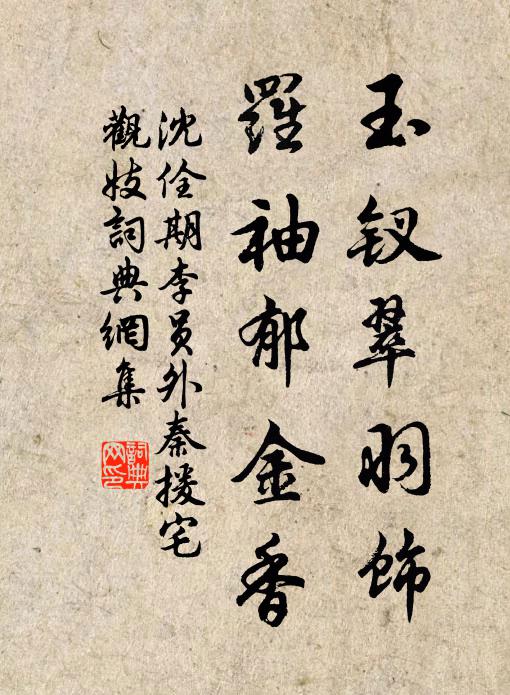 玉钗翠羽饰
羅袖郁金香
沈佺期李员外秦援宅
觀妓詞典網集
詞典网印